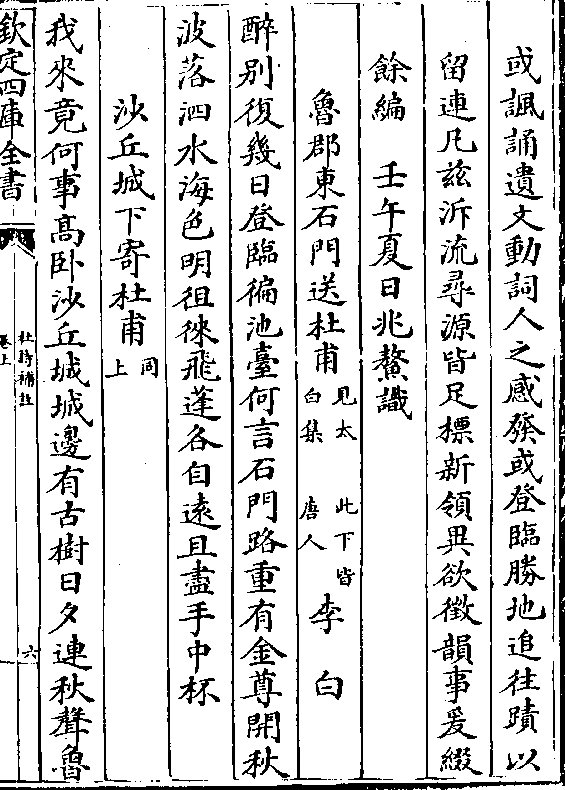 或諷誦遺文動詞人之感發或登臨勝地追往蹟以
留連凡兹泝流尋源皆足標新領異欲徵韻事爰綴
餘編　壬午夏日兆鰲識
魯郡東石門送杜甫見太白集　此下皆唐人　李白
醉别復幾日登臨徧池臺何言石門路重有金尊開秋
波落泗水海色明徂徠飛蓬各自遠且盡手中杯
沙丘城下寄杜甫同上
我來竟何事高卧沙丘城城邊有古樹日夕連秋聲魯
欽定四庫全書
杜詩補註
卷上
六